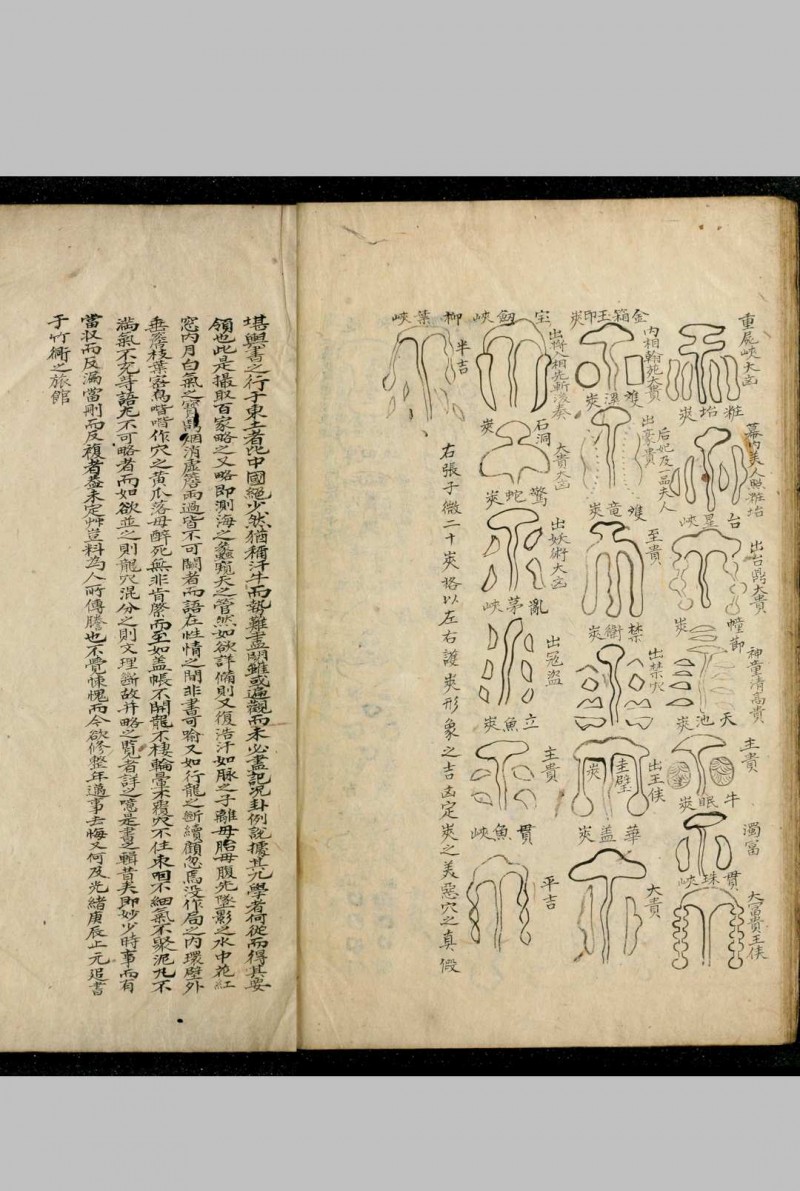 重屍峽大凶
粧坮峽
幕內美人照粧坮
台星峽
出台鼎大貴
幢節峽
神童清高貴
天池峽
主貴
牛眠峽
濁富
貫珠峽
大富貴王侯
金箱玉印峽
內相翰苑大貴
雙瀑峽
出豪貴
后妃及一品夫人
雙竜峽
至貴
禁衙峽
出禁
圭璧峽
出王侯
華盖峽
大貴
宝劔峽
出將入相先斬後奏
石洞峽
大貴大凶
驚蛇峽
出妖術大凶
亂茅峽
出冦盜
立魚峽
主貴
貫魚峽
平吉
柳葉峽
半吉
右張子微二十峽格以左右護峽形象之吉凶定峽之美惡穴之真假
堪輿書之行于東土者比中國絕少然猶稱汗牛而勢難盡閱雖或遍觀而未必盡記况卦例說據其兀學者何從而得其要
領也此是撮取百家略之又略即測海之蠡窺天之管然如欲詳備則又復浩汗如脉之子離母胎母腹先墜影之水中花紅
窓内月白氣之寳鴨烟消虛簷雨過皆不可闕者而語在性情之間非書可喻又如行龍之斷續顧忽馬没作局之内環壁外
垂 枝葉客鳥喈喈作穴之黄瓜落母醉死無非肯綮而至如盖帳不開龍不棲輪暈不覆穴不住束咽不細氣不聚泥丸不
满氣不充等語尤不可略者而如欲並之則龍穴混分之則文理斷故幷略之覧者詳之噫是書之輯昔矣即妙少時事而有
當収而反漏當刪而反複者盖未定艸豈料為人所傳謄也不覺悚愧而今欲修整年邁事去悔又何及光緒庚辰上元追書
于竹衕之旅館